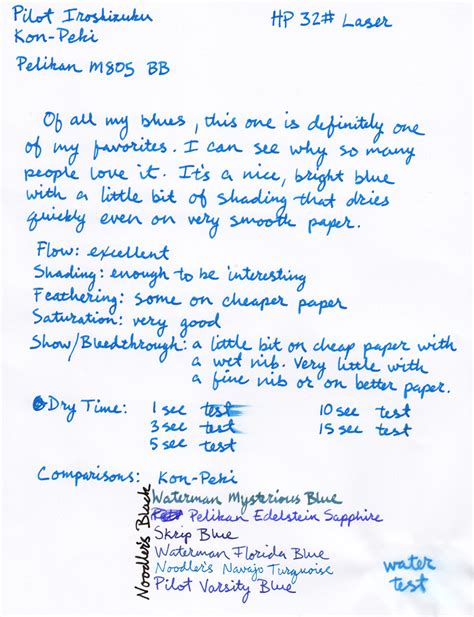 Pilot Iroshizuku
HP 32# Laser
Kon-Peki
Pelikan M805 BB
Of all my blues, this one is definitely one
of my favorites. I can see why so many
people love it. It's a nice, bright blue
with a little bit of shading that dries
quickly even on very smooth paper.
Flow: excellent
Shading: enough to be interesting
Feathering: some on cheaper paper
Saturation: very good
Show/Bleedthrough: a little bit on cheap paper with
a wet nib. Very little with
a fine nib or on better paper.
Dry Time: 1 sec test 10 sec test
3 sec test 15 sec test
5 sec test
Comparisons: Kon-Peki
Noodler's Black
Waterman Mysterious Blue
Pelikan Edelstein Sapphire
Skrip Blue
Waterman Florida Blue
Noodler's Navajo Turquoise
Pilot Varsity Blue
water
test